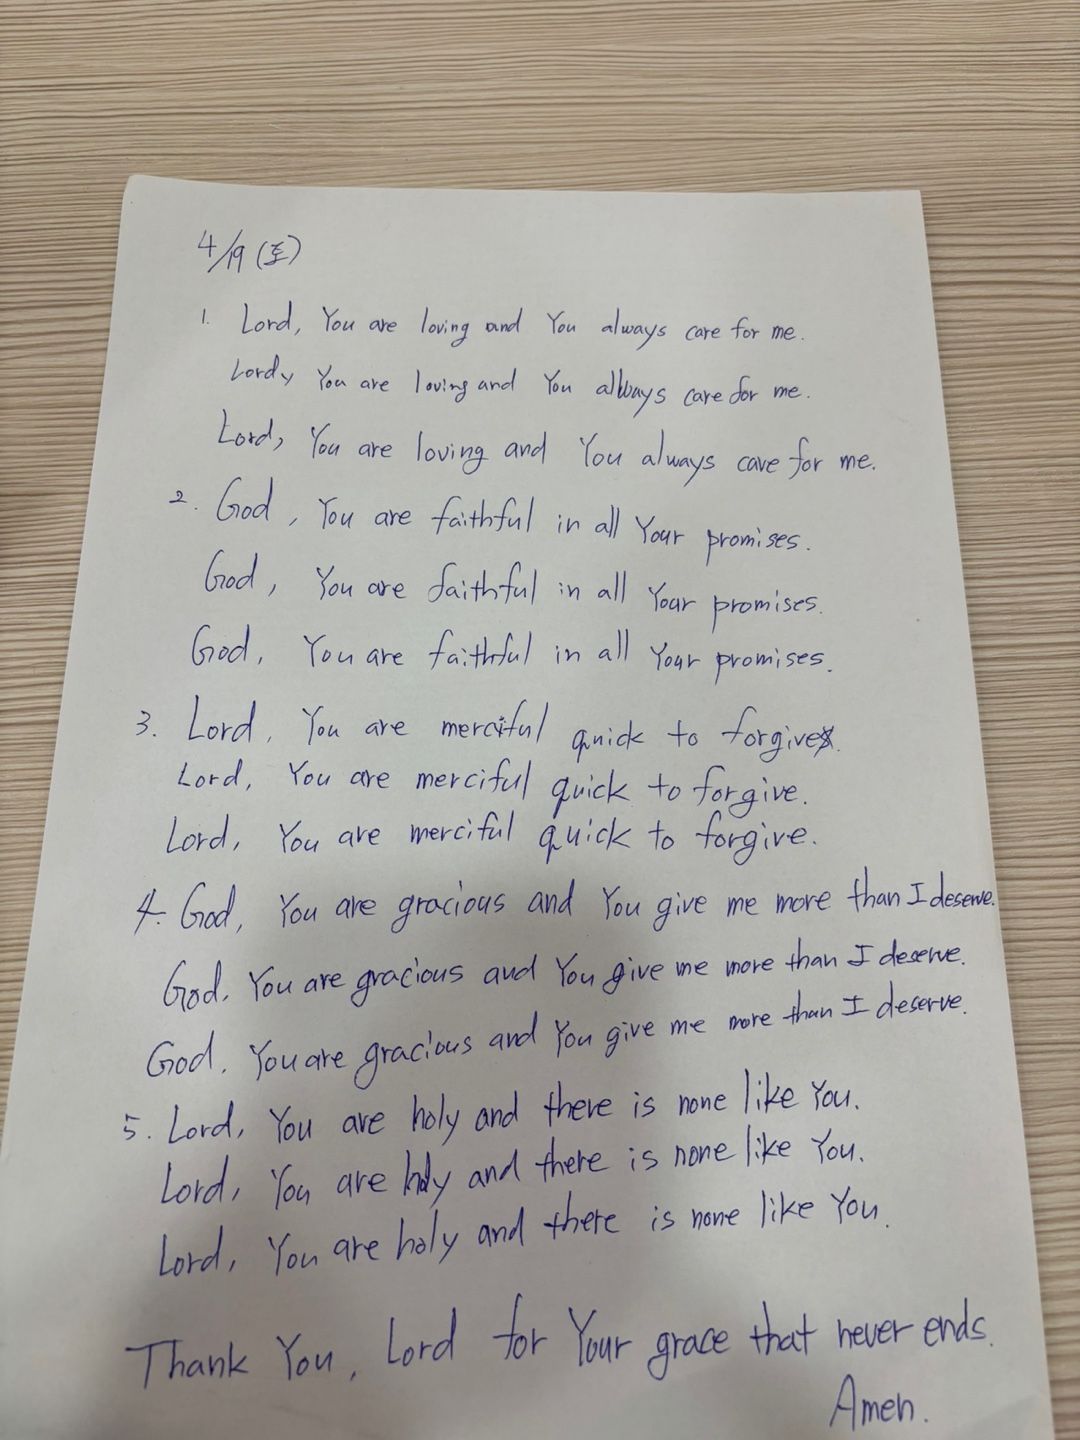 4/19 (토)
1. Lord, You are loving and You always care for me.
Lord, You are loving and You always care for me.
Lord, You are loving and You always care for me.
2. God, You are faithful in all Your promises.
God, You are faithful in all Your promises.
God, You are faithful in all Your promises.
3. Lord, You are merciful quick to forgive.
Lord, You are merciful quick to forgive.
Lord, You are merciful quick to forgive.
4. God, You are gracious and You give me more than I deserve.
God, You are gracious and You give me more than I deserve.
God, You are gracious and You give me more than I deserve.
5. Lord, You are holy and there is none like You.
Lord, You are holy and there is none like You.
Lord, You are holy and there is none like You.
Thank You, Lord for Your grace that never ends.
Amen.